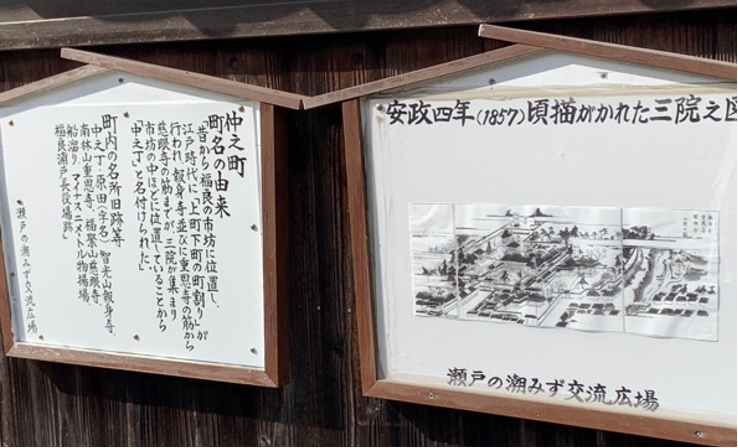 仲之町
町名の由来
「昔から福良の市坊に位置し、
江戸時代に「上町下町の町割り」が
行われ、報身寺並びに重恩寺の筋から
慈眼寺の筋までが、三院が集まり
市坊の中ほどに位置していることから
「中之丁」と名付けられた」
町内の名所旧跡等
中之丁・原田(字名) 智光山報身寺、
南林山重恩寺、福繁山慈眼寺、
船溜り マイナス二メートル物揚場、
福良浦戸長役場跡」
瀬戸の潮みず交流広場
安政四年(1857)頃描がかれた三院之図
瀬戸の潮みず交流広場